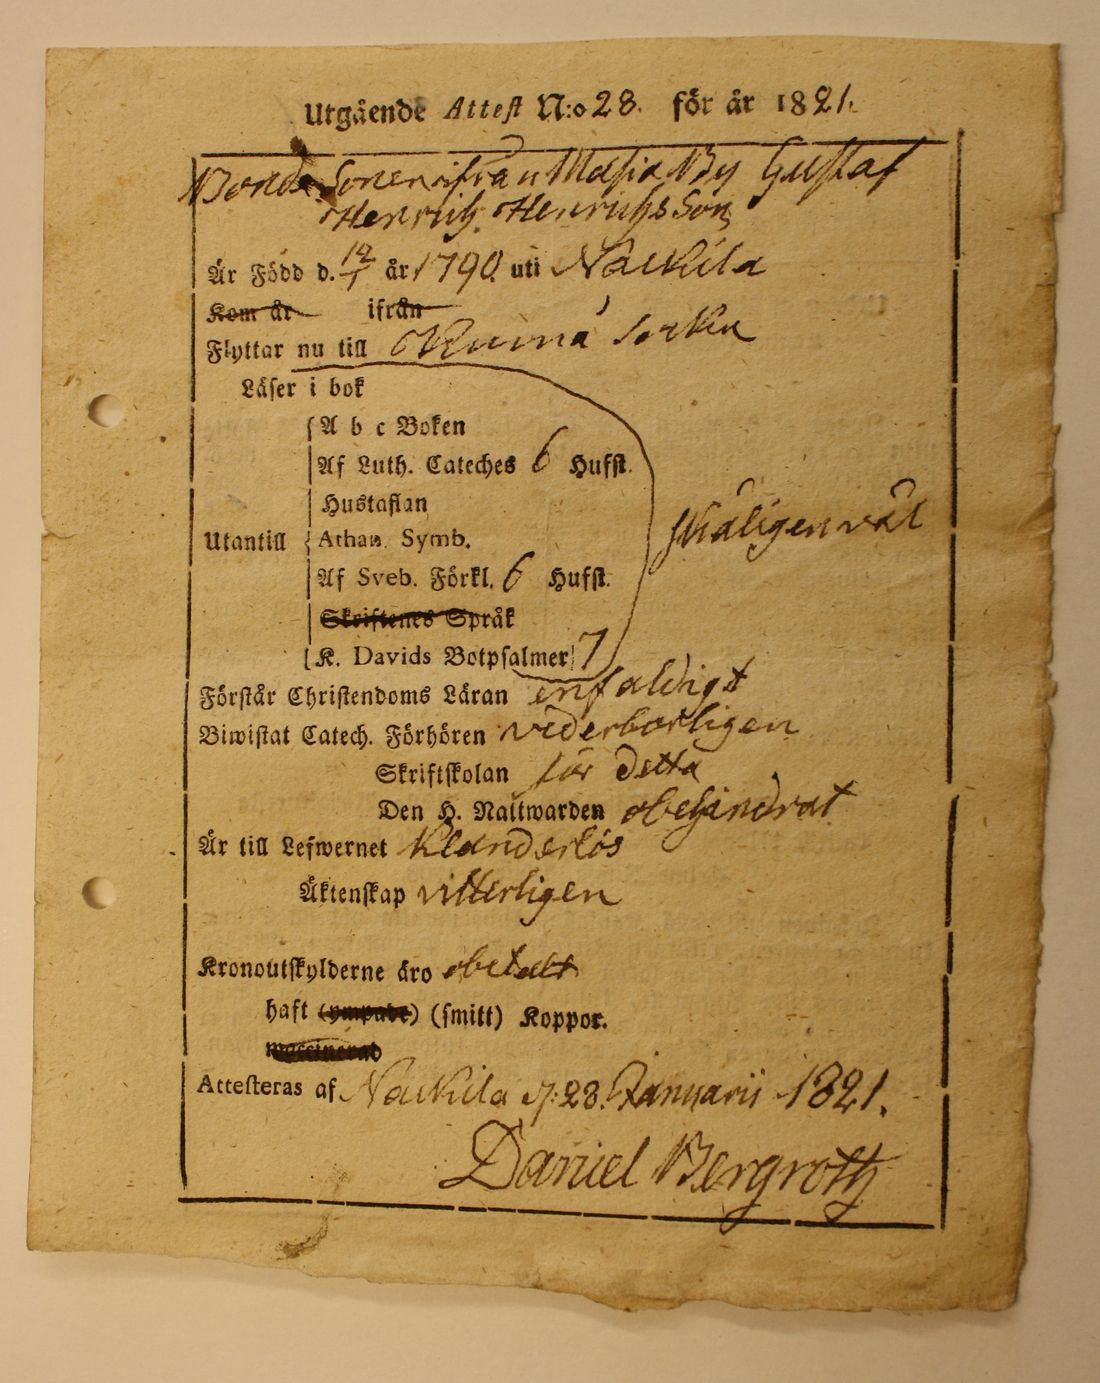 Utgående Attest N:o 28. för år 1821.
Bonde Sonen ifrån Masia By Gustaf
Henrich Henrichs Son
Är Född d. 12/1 år 1790 uti Nackila
Kom år ifrån
Flyttar nu till Sockn
Läser i bok
A b c Boken
Af Luth. Cateches 6 Hufst.
Hustaflan
Utantill Athan. Symb.
Af Sveb. Förkl. 6 Hufst.
Skriftenes Språk
K. Davids Botpsalmer 7
wäl
Förstår Christendoms Läran enfaldigt
Biwistat Catech. Förhören vederbörligen
Skriftskolan för detta
Den H. Nattwarden obehindrat
Är till Lefwernet Klanderlös
Äktenskap vitterligen
Kronoutskylderne äro obetalt
haft (ympade) (smitt) Koppor.
waccinerad
Attesteras af Nackila d: 28. Januarii 1821.
Daniel Bergroth